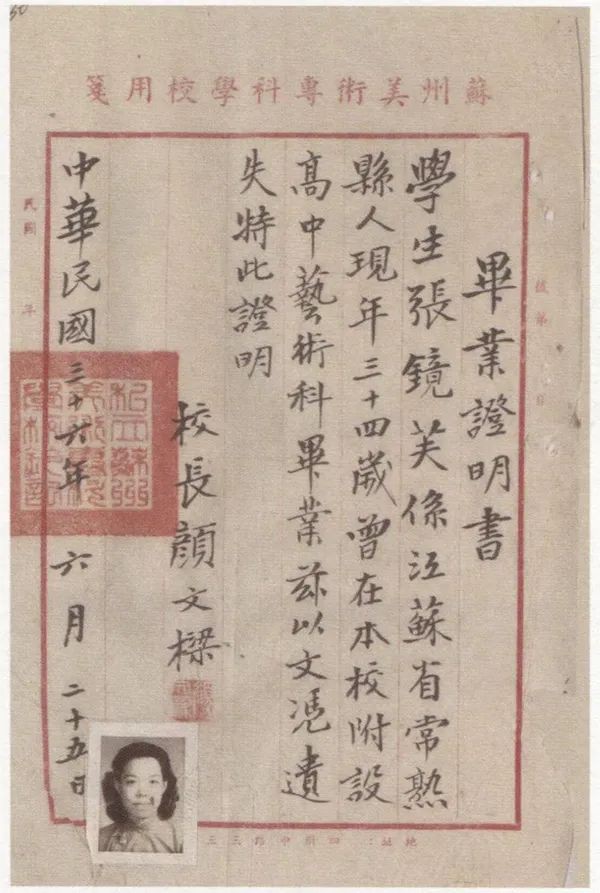 50
蘇州美術專科學校用箋
畢業證明書
學生張鏡芙係江蘇省常熟
縣人現年三十四歲曾在本校附設
高中藝術科畢業茲以文憑遺
失特此證明
校長顏文樑
中華民國三十六年六月二十五日
民國 年